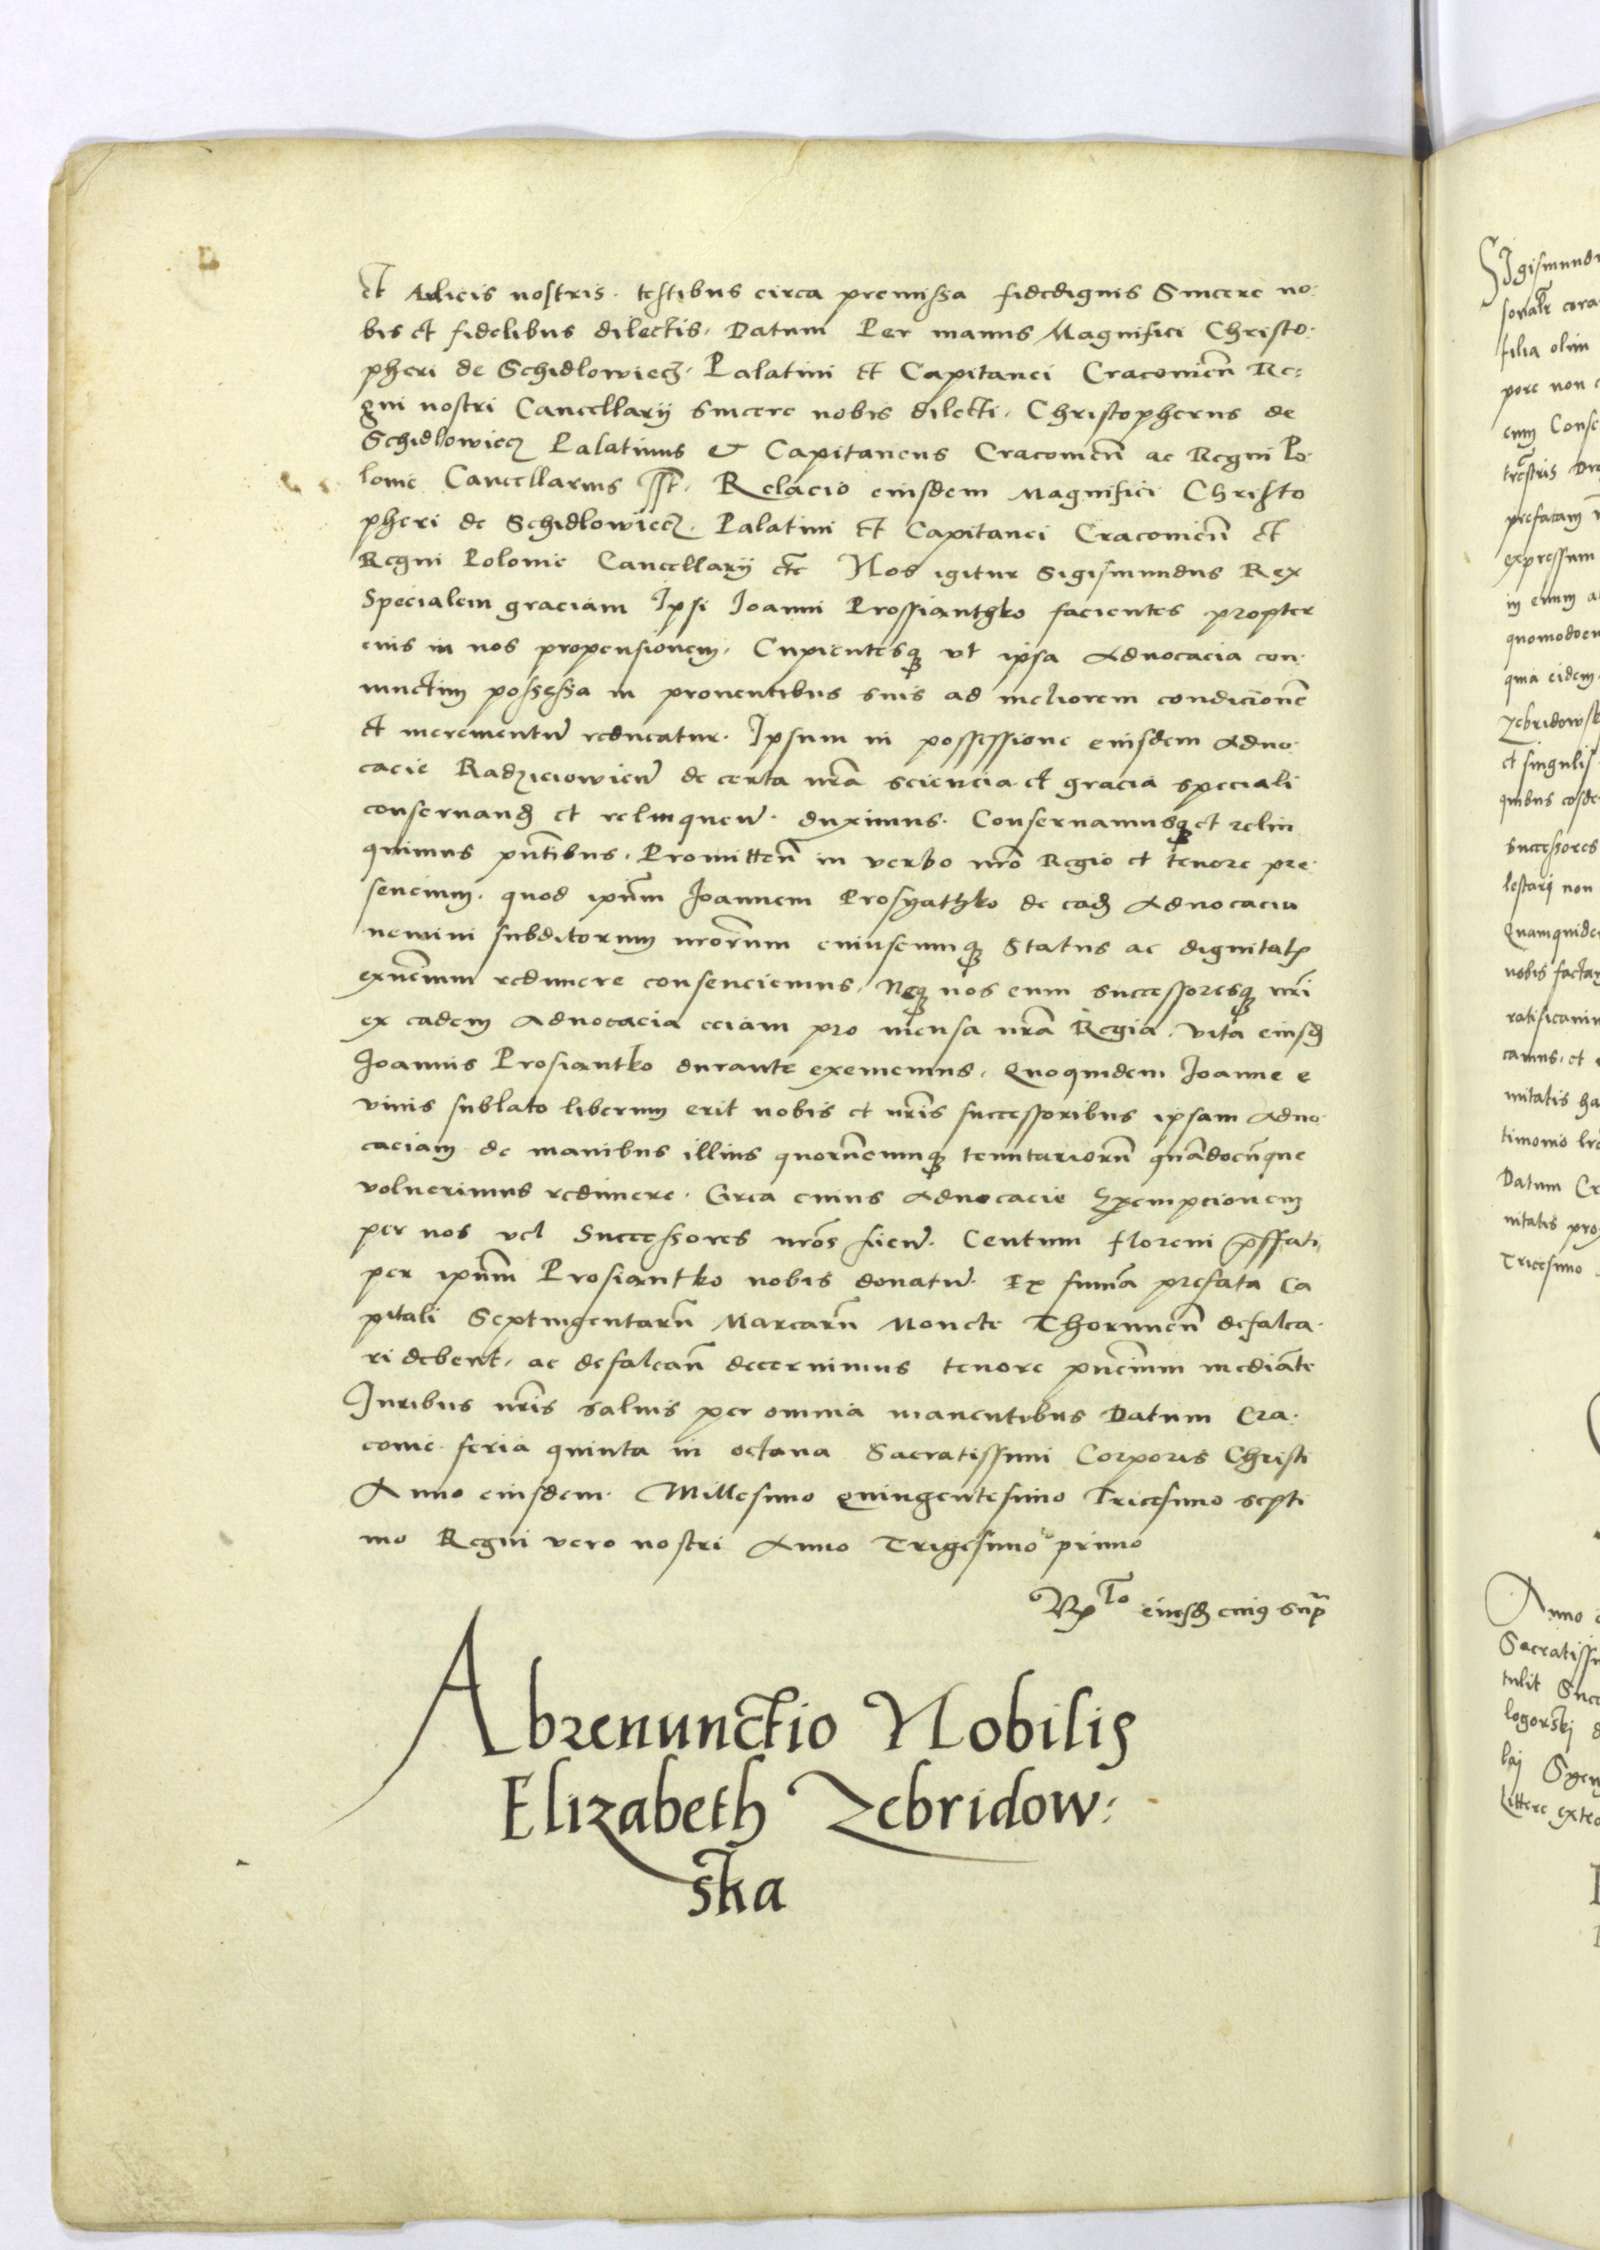 et Aulicis nostris. testibus circa premissa fidedignis Sincere no:
bis et fidelibus dilectis. Datum Per manus Magnifici Christo:
pheri de Schidlowiecz. Palatini et Capitanei Cracouień Re:
gni nostri Cancellarij sincere nobis dilecti. Christopherus de
Schidlowiecz Palatinus & Capitaneus Cracouień ac Regni Po:
lonie Cancellarius sst. Relacio eiusdem Magnifici Christo
pheri de Schidlowiecz. Palatini et Capitanei Cracouień et
Regni Polonie Cancellarij etc Nos igitur Sigismundus Rex
Specialem graciam Ipsi Joanni Prossianthko facientes propter
eius in nos propensionem. Cupientesq3 vt ipsa Aduocacia con
iunctim possessa in prouentibus suis ad meliorem condicionē
et incrementū reducatur. Ipsum in possessione eiusdem Aduo
cacie Radzieiowień de certa nrā sciencia et gracia speciali
conseruand et relinqueń. duximus. Conseruamusq3 et relin
quimus pn̄tibus. Promitteń in verbo nrō Regio et tenore pre
sencium. quod ipūm Joannem Prosyathko de ead Aduocacia
nemini subditorum nrōrum cuiuscumq3 Status ac dignitatis
exn̄cium redimere consenciemus. Neq3 nos eum successoresq3 nrī
ex eadem Aduocacia eciam pro mensa nrā Regia. vita eiusd
Joannis Prosiantko durante exememus. Quoquidem Joanne e
viuis sublato liberum erit nobis et nrīs successoribus ipsam Aduo
caciam de manibus illius quorūcumq3 tenutariorū quādocūque
voluerimus redimere. Circa cuius Aduocacie Exempcionem
per nos vel Successores nrōs fień. Centum floreni
per ipūm Prosiantko nobis donatū. Ex summa prefata Ca
pitali Septingentarū Marcarū Monete Thorunień defalca
ri debent. ac defalcań decernimus tenore pn̄cium mediāte
Juribus nrīs saluis per omnia manentibus Datum Cra
couie feria quinta in octaua Sacratissimi Corporis Christi
Anno eiusdem. Millesimo Quingentesimo Tricesimo septi
mo Regni vero nostri Anno Trigesimo primo
eiusd cuius sup
Abrenunctio Nobilis
Elizabeth Zebridow:
ska
Sigismund
filia olim
pore non
eum Conse
prefatam
expressum
in eum
quomodocu
quia eidem
Zebridowsk
et singulis
quibus eosde
successores
lestari non
Quamquide
nobis factam
camus. et
nitatis
Datum Cr
nitatis pro
Tricesimo
Anno
Sacratissi
tulit Suc
logorski
laj
Littere exte